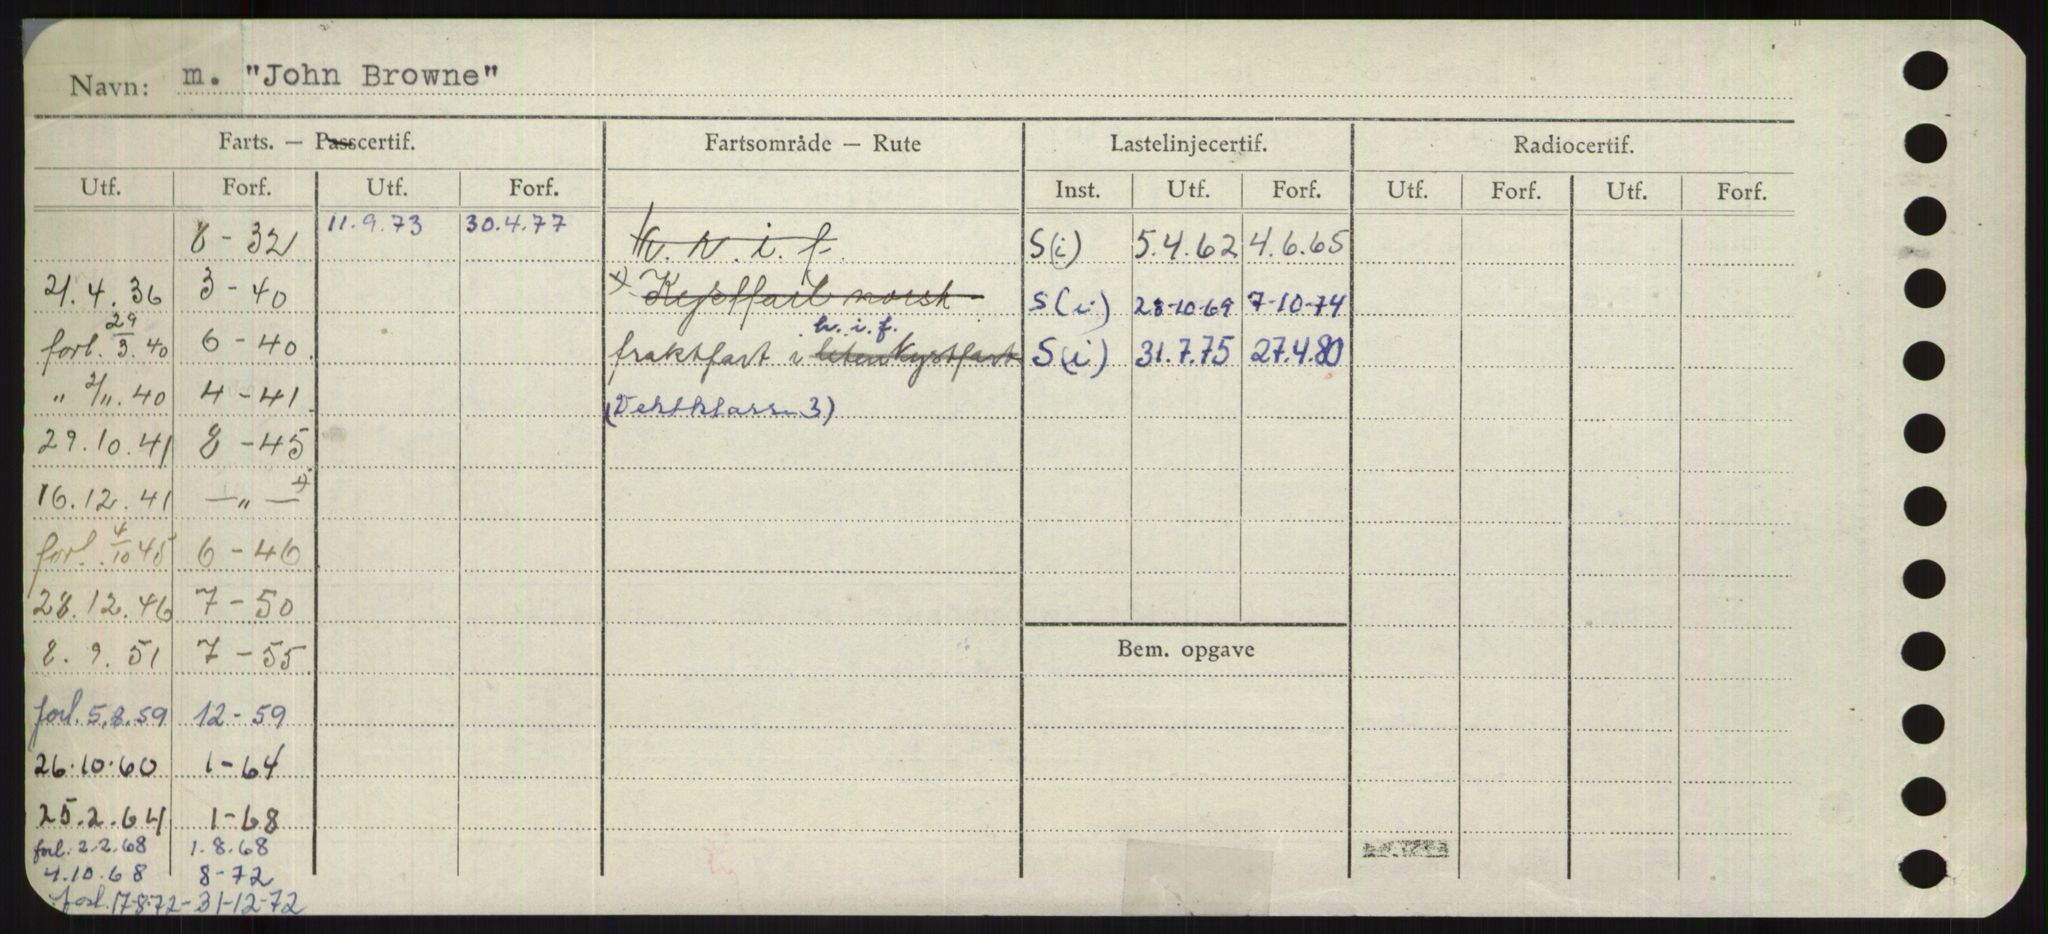 Navn: m. "John Browne"
Farts. — Passcertif. Fartsområde — Rute Lastelinjecertif. Radiocertif.
Utf. Forf. Utf. Forf. Inst. Utf. Forf. Utf. Forf. Utf. Forf.
8 - 32 11.9.73 30.4.77 i. f. S(i) 5.4.62 4.6.65
21.4.36 3 - 40 x) Kystfart norsk S(i) 28-10-69 7-10-74
h. i. f.
forl. 29/3.40 6 - 40 fraktfart i liten kystfart S(i) 31.7.75 27.4.80
" 2/11.40 4 - 41 (Vektklasse 3)
29.10.41 8 - 45
16.12.41 — " — x)
forl. 4/10 45 6 - 46
28.12.46 7 - 50
8.9.51 7 - 55
Bem. opgave
forl. 5.8.59 12 - 59
26.10.60 1 - 64
25.2.64 1 - 68
forl. 2.2.68 1.8.68
4.10.68 8-72
forl. 17-8-72 - 31-12-72